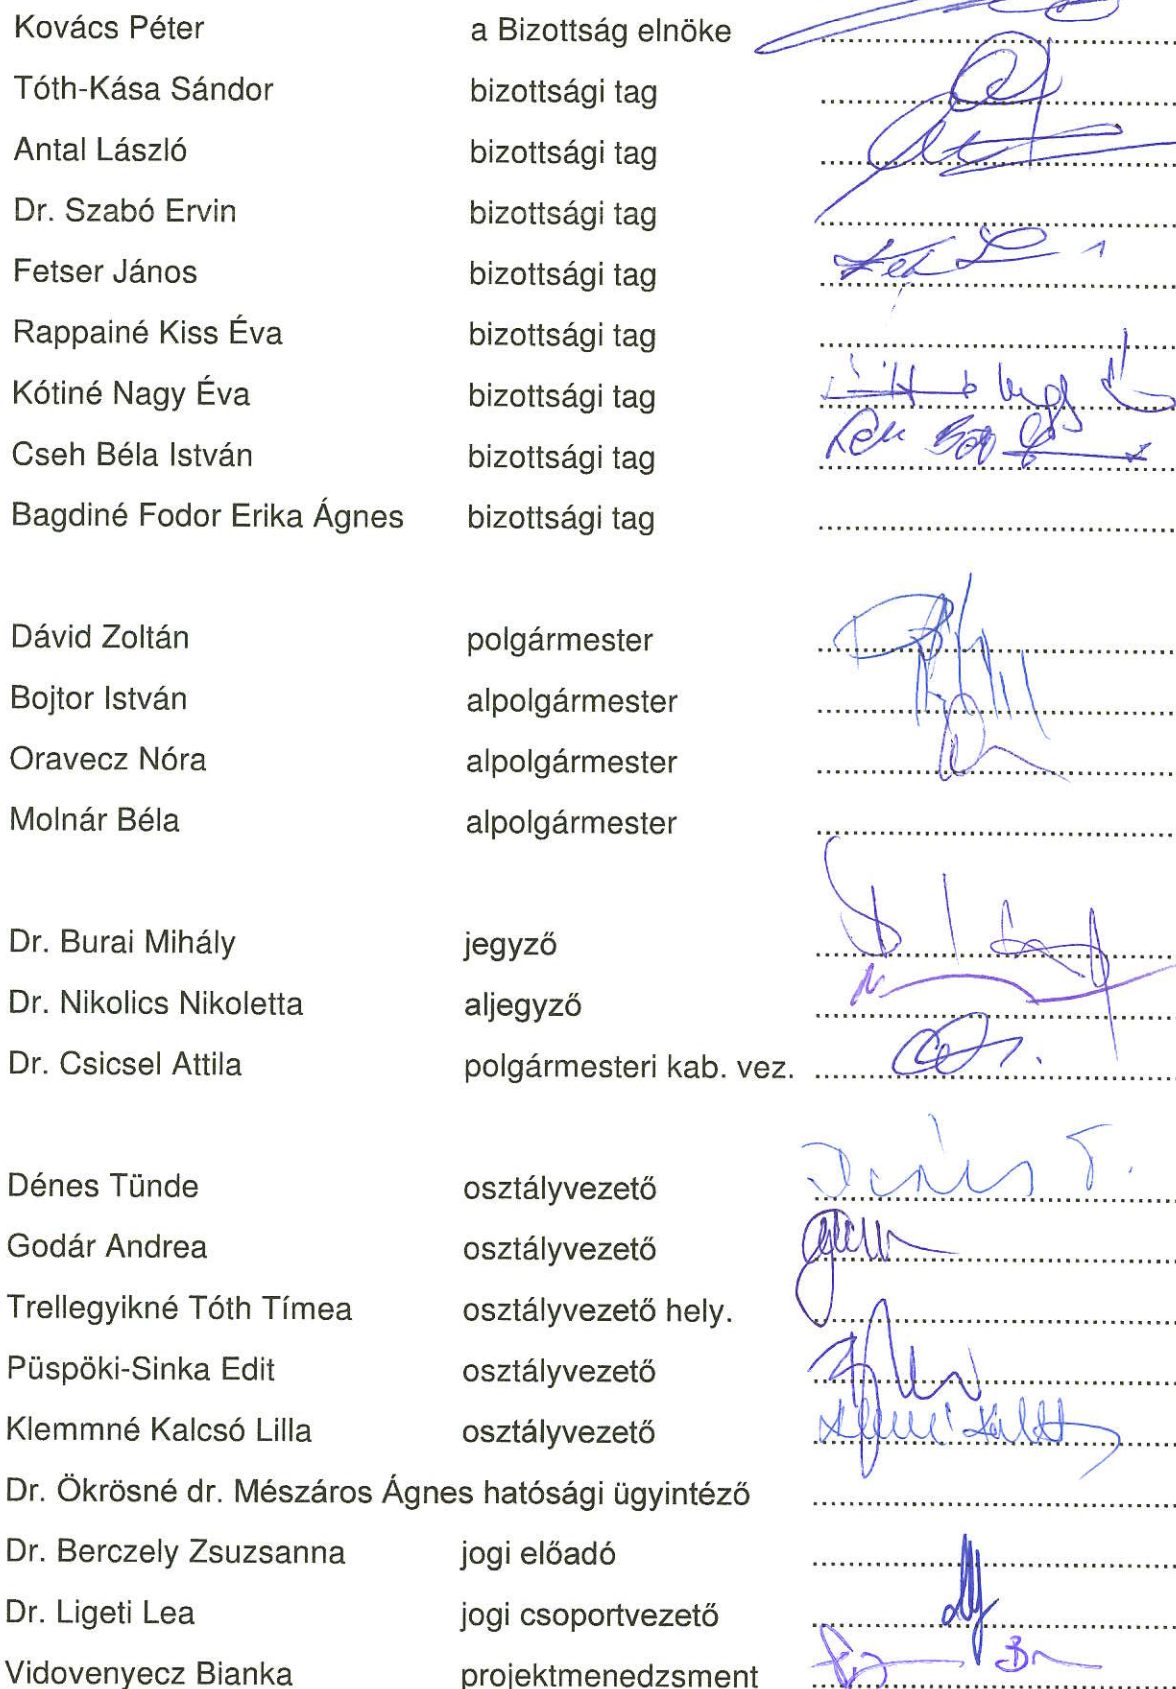 Kovács Péter a Bizottság elnöke
Tóth-Kása Sándor bizottsági tag
Antal László bizottsági tag
Dr. Szabó Ervin bizottsági tag
Fetser János bizottsági tag
Rappainé Kiss Éva bizottsági tag
Kótiné Nagy Éva bizottsági tag
Cseh Béla István bizottsági tag
Bagdiné Fodor Erika Ágnes bizottsági tag
Dávid Zoltán polgármester
Bojtor István alpolgármester
Oravecz Nóra alpolgármester
Molnár Béla alpolgármester
Dr. Burai Mihály jegyző
Dr. Nikolics Nikoletta aljegyző
Dr. Csicsel Attila polgármesteri kab. vez.
Dénes Tünde osztályvezető
Godár Andrea osztályvezető
Trellegyikné Tóth Tímea osztályvezető hely.
Püspöki-Sinka Edit osztályvezető
Klemmné Kalcsó Lilla osztályvezető
Dr. Ökrösné dr. Mészáros Ágnes hatósági ügyintéző
Dr. Berczely Zsuzsanna jogi előadó
Dr. Ligeti Lea jogi csoportvezető
Vidovenyecz Bianka projektmenedzsment